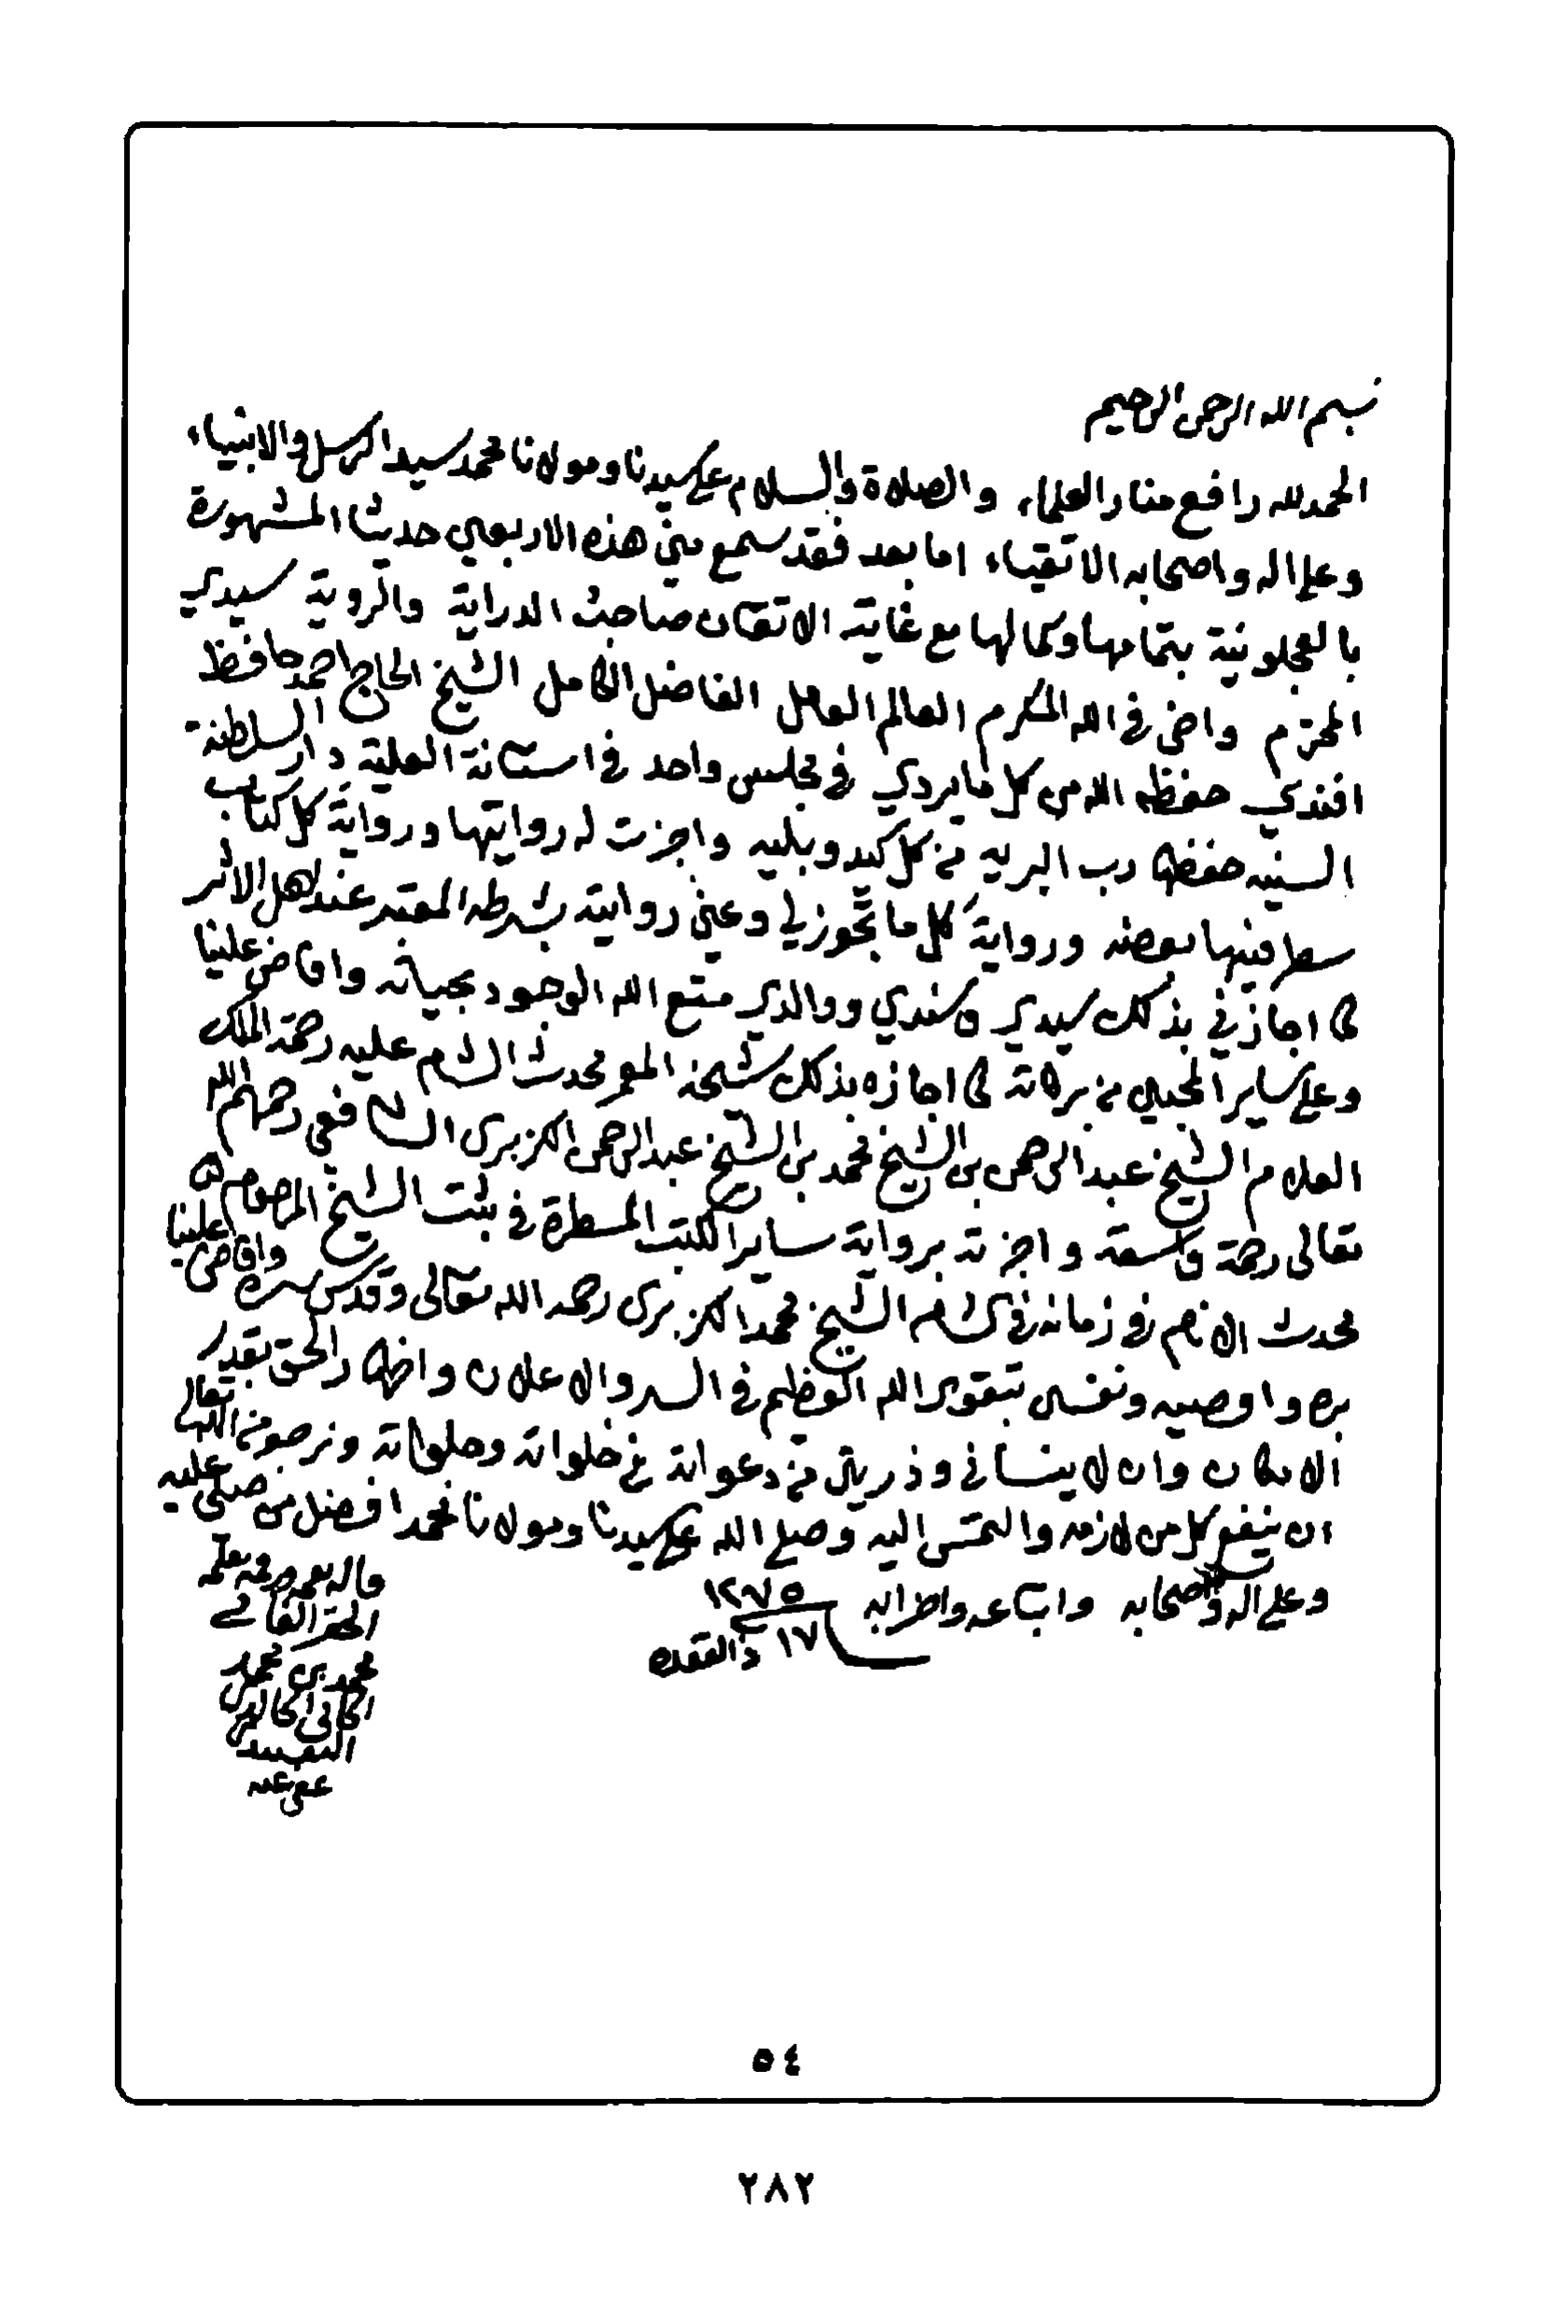 بسم الله الرحمن الرحيم
الحمد لله رافع منار العلماء والصلاة والسلام على سيدنا ومولانا محمد سيد الرسل والانبياء
وعلى اله واصحابه الاتقياء اما بعد فقد سمع مني هذه الاربعين حديثا المشهورة
بالعجلونية بتمامها وكمالها مع غاية الاتقان صاحب الدراية والروية سيدي
المحترم واخي في الله المكرم العالم العامل الفاضل الكامل الشيخ الحاج احمد حافظ
افندي حفظه الله من كل ما يردي في مجلس واحد في استانة العلية دار السلطنة
السنيه حفظها رب البريه من كل كيد وبليه واجزت له روايتها ورواية كل كتاب
سطر فيها بعضه ورواية كل ما تجوز لي وعني روايته بشرطه المعتبر عند اهل الاثر
كما اجازني بذلك سيدي وسندي ووالدي متع الله الوجود بحياته وافاض علينا
وعلى ساير المحبين من بركاته كما اجازه بذلك شيخه محدث الشام عليه رحمة الملك
العلام الشيخ عبد الرحمن بن الشيخ محمد بن الشيخ عبد الرحمن الكزبرى الشافعي رحمهم الله
تعالى رحمة واسعة واجزته برواية ساير الكتب المسطرة في ثبت الشيخ المرحوم
محدث الانام في زمانه في الشام الشيخ محمد الكزبرى رحمه الله تعالى وقدس سره وافاض علينا
بره واوصيه ونفسي بتقوى الله العظيم في السر والاعلان واظهار الحق بقدر
الامكان وان لا ينساني وذريتي من دعواته في خلواته وجلواته ونرجو من الله تعالى
ان ينفع كل من لازمه والتمس اليه وصلى الله على سيدنا ومولانا محمد افضل من صلى عليه
وعلى اله واصحابه واتباعه واحزابه ١٢٧٥
١٧ ذالقعده
قاله بفمه ورقمه بقلمه
الحقير الفاني
محمد بن محمد
الخاني الخالدي
النقشبند
عفي عنه
٥٤
٢٨٢